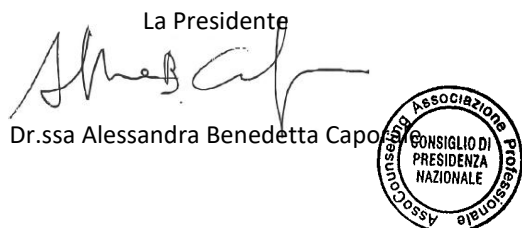 La Presidente
Dr.ssa Alessandra Benedetta
AssoCounseling Associazione Professionale
CONSIGLIO DI
PRESIDENZA
NAZIONALE